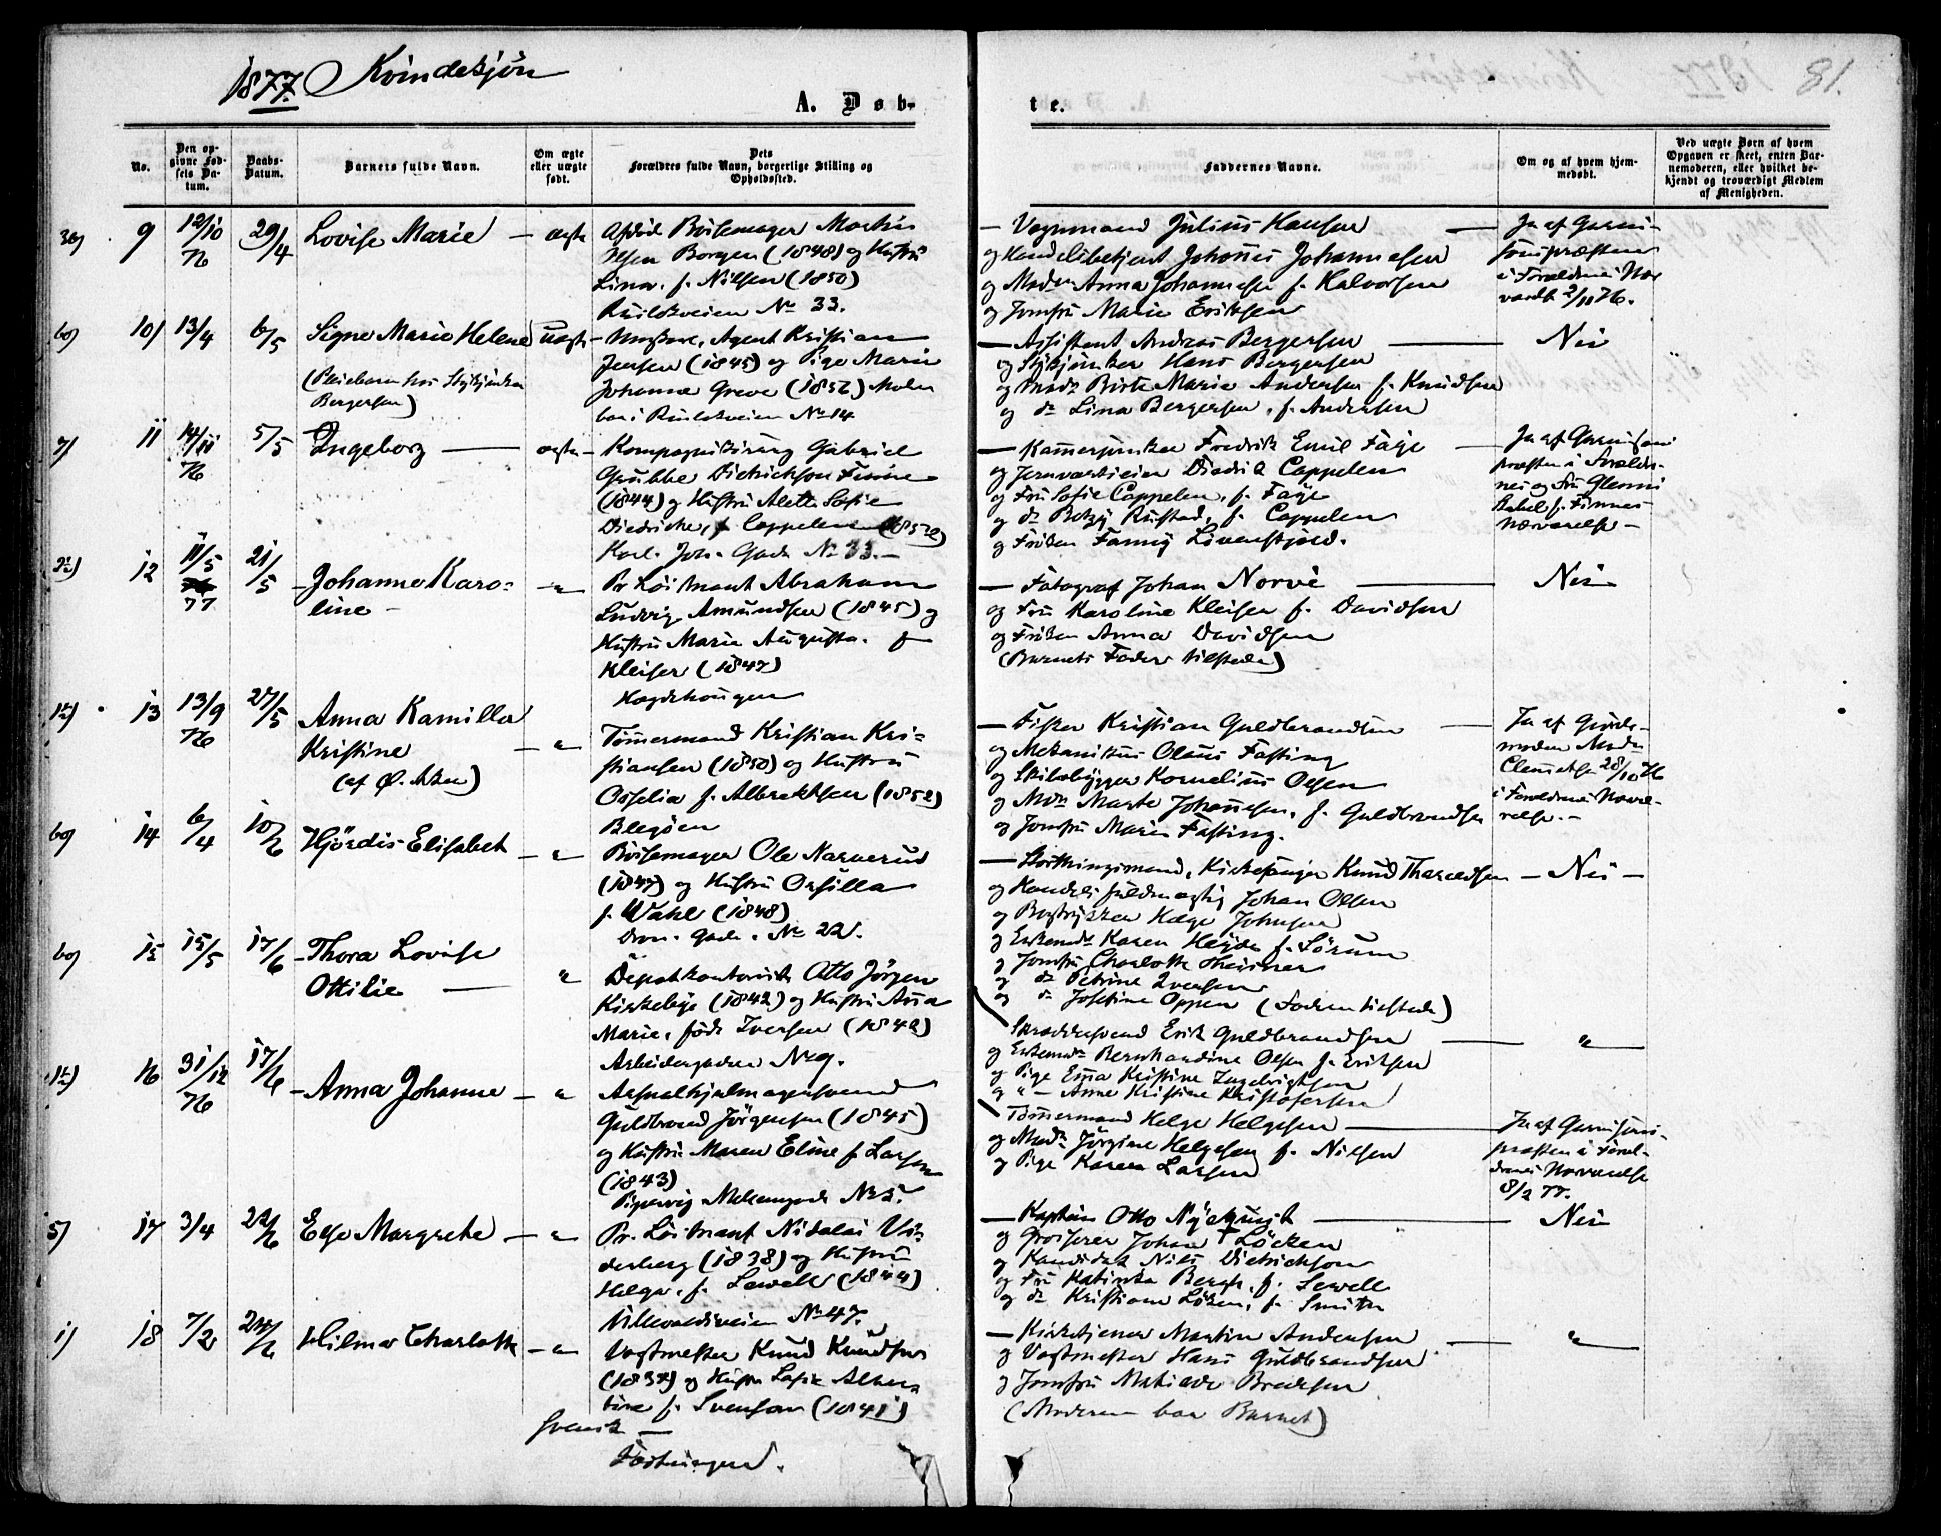 1877. Kvindekjön
81.
A. Døb-
te.
No.
Den op-
givne Fød-
sels Da-
tum.
Daabs-
Datum.
Barnets fulde Navn.
Om ægte
eller uægte
født.
Dets
Forældres fulde Navn, borgerlige Stilling og
Opholdssted.
Faddernes Navne.
Om og af hvem hjem-
medøbt.
Ved uægte Børn af hvem
Opgaven er skeet, enten Bar-
nemoderen, eller hvilket be-
kjendt og troværdigt Medlem
af Menigheden.
9 12/10 76 29/4 Lovise Marie — ægte
Börsemager Martin
Olsen Borgen (1848) og Hustru
Lina, f. Nilsen (1850)
No 33.
— Vognmand Julius Hansen
og Handelsbetjent Johannes Johannesen
og Mad. Anna Johannesen f. Halvorsen
og Jomfru Marie Eriksen
Ja af Garni-
sonspræsten
i Forældrenes Nær
værelse 2/11 76.
10 13/4 6/5 Signe Marie Helene uægte
(Pleiebarn hos Stykjunker
Bergersen)
— Ungkarl, Agent Kristian
Jensen (1845) og Pige Marie
Johanna Greve (1852) Moder
bor i No 14
— Assistent Andreas Bergersen
og Stykjunker Hans Bergersen
og Mad. Birte Marie Andersen f. Knudsen
og do Lina Bergersen, f. Andersen
Nei
7) 11 14/11 76 5/5 Ingeborg — ægte
— Kompagnikirurg Gabriel
Grubbe Dietrichson Finne
(1844) og Hustru Alette Sofie
Diedricke, f. Cappelen (1852)
Karl. Joh. Gade No 33.—
— Kammerjunker Fredrik Emil Faye
og Jernværkseier Diedrik Cappelen
og Fru Sofie Cappelen, f. Faye
og do Betzy Rustad, f. Cappelen
og Fröken Fanny Lövenskjold.
Ja af Garnisons
præsten i Foreldre-
nes og Fru
Rabel f. Finnes
nærværelse —
12 11/5 77 21/5 — Johanne Karo-
line —
Pr. Löitnant Abraham
Ludvig Amundsen (1845) og
Hustru Marie Augusta, f.
Kleiser (1847)
Hægdehougen
— Fotograf Johan Norvie
og Fru Karoline Kleisen f. Davidsen
og Fröken Anna Davidsen
(Barnets Fader tilstede)
Nei
13 13/9 76 27/5 Anna Kamilla
Kristine
(af Ø. Aker)
Tömmermand Kristian Kri-
stiansen (1850) og Hustru
Ossilia f. Albrektsen (1852)
Blegöen
— Fisker Kristian Guldbrandsen
og Mekanikus Olaus Fasting
og Skibsbygger Kornelius Olsen
og Mad. Marte Johannesen, f. Guldbrandsen
og Jomfru Marie Fasting.
Ja af Gjorde-
moder Mad.
Clemetsen 28/10 76
i Foreldrenes Nærvæ-
relse.—
14 6/4 10/6 Hjördis Elisabet
Börsemager Ole Narverud
(1847) og Hustru Orsilla
f. Wahl (1848)
Dron. Gade. No 22.
— Storthingsmand, Kirkesanger Knud Tharaldsen
og Handelsfuldmægtig Johan Olsen
og Bogtrykker Helge Johnsen
og Enkemad. Karen Heyde f. Sörum
og Jomfru Charlotte Meisner
og do Petrine Iversen
og do Josefine Oppen (Faderen tilstede)
— Nei —
15 15/5 17/6 — Thora Lovise
Ottilie —
Depotkontorist Otto Jörgen
Kirkebye (1842) og Hustru Anna
Marie, född Iversen (1842)
Arbeidergaden No 9.
Skræddersvend Erik Guldbrandsen
og Enkemad. Bernhardine Olsen f. Eriksen
og Pige Emma Kristine Ingebrigtsen
og " — Anne Kristine Kristofersen
16 31/12 76 17/6 — Anna Johanne —
Arsenalhjulmagersvend
Guldbrand Jörgensen (1845)
og Hustru Maren Eline f. Larsen
(1843)
Pipervig No 5.
Tömmermand Helge Helgesen
og Mad. Jörgine Helgesen f. Nilsen
og Pige Karen Larsen
Ja af Garnisons-
præsten i Forel-
drenes Nærværelse
8/2 77.
5) 17 3/4 22/6 Else Margrete —
Pr. Löitnant Nikolai Vi-
derberg (1838) og Hustru
Helga, f. Sewell (1844)
Ullevoldsveien No 47.
— Kaptein Otto Nyequist
og Grosserer Johan Löcken
og Kandidat Nils Dietrichson
og Fru Katinka Bergh, f. Sewell
og do Kristiane Löken, f. Smith
Nei
1) 18 7/2 24/6 Hilma Charlotte
Vagtmester Knud Knudsen
(1837) og Hustru Sofie Alber-
tine f. Svenson (1841)
svensk —
Fæstningen.
— Kirketjener Martin Andersen
og Vagtmester Hans Guldbrandsen
og Jomfru Matilde Bredesen
(Moderen bar Barnet)